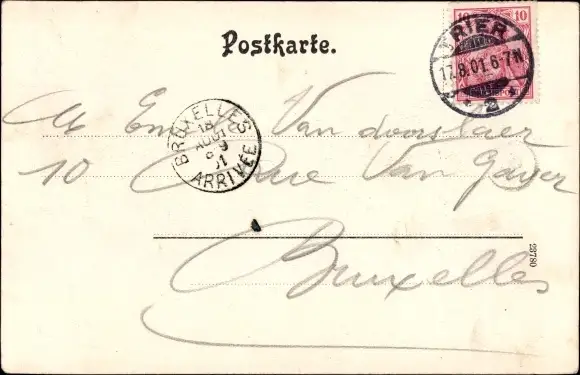 Postkarte.
10 10
TRIER
17.8.01.6-7N
* 2 *
BRUXELLES
18
AOUT
ARRIVÉE
Van doorslaer
10 Rue Van
Bruxelles
23780